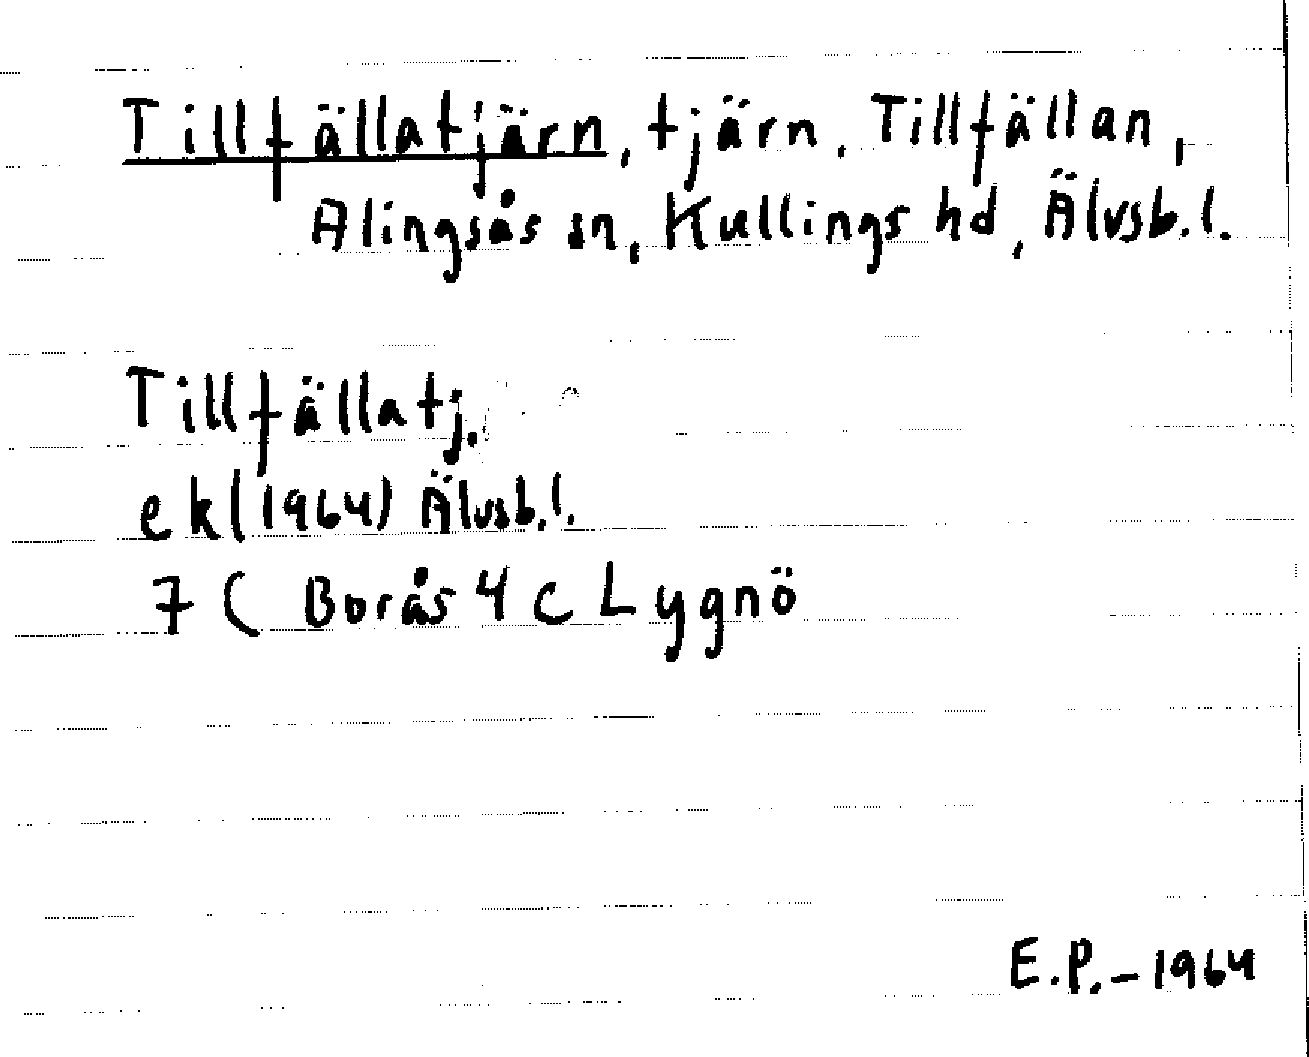 Tillfällatjärn, tjärn, Tillfällan,
Alingsås sn, Kullings hd, Älvsb.l.
Tillfällatj.
ek (1964) Älvsb.l.
7 ( Borås 4 C Lygnö
E.P.–1964